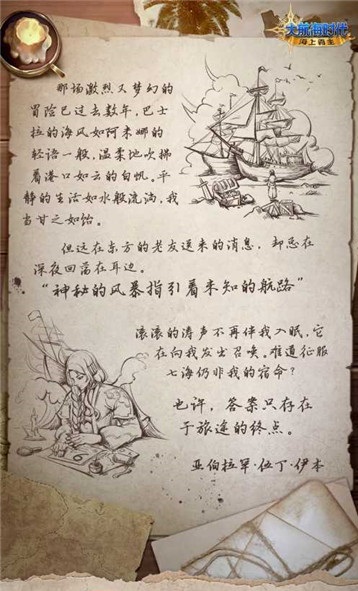 大航海时代
海上霸主
那场激烈又梦幻的
冒险已过去数年，巴士
拉的海风如阿米娜的
轻语一般，温柔地吹拂
着港口如云的白帆。平
静的生活如水般流淌，我
当甘之如饴。
但这在东方的老友送来的消息，却总在
深夜回荡在耳边。
“神秘的风暴指引着未知的航路”
滚滚的涛声不再伴我入眠，它
在向我发出召唤。难道征服
七海仍非我的宿命？
也许，答案只存在
于旅途的终点。
亚伯拉罕·伍丁·伊本